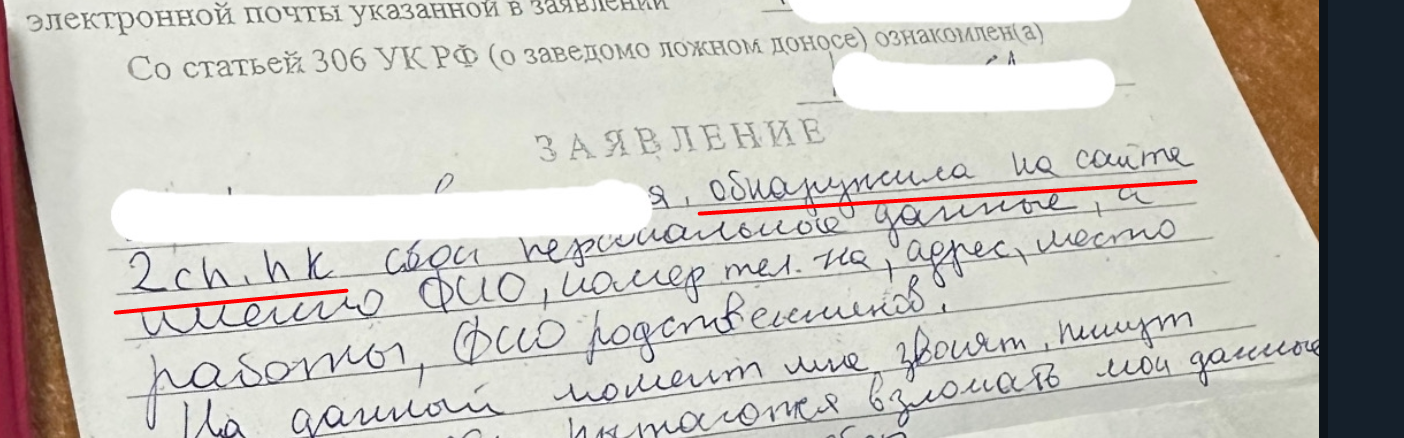 электронной почты указанной в заявлении
Со статьей 306 УК РФ (о заведомо ложном доносе) ознакомлен(а)
ЗАЯВЛЕНИЕ
я, обнаружила на сайте
2ch.hk свои персональные данные, а
именно ФИО, номер тел. на, адрес, место
работы, ФИО родственников.
На данный момент мне звонят, пишут
пытаются взломать мои данные